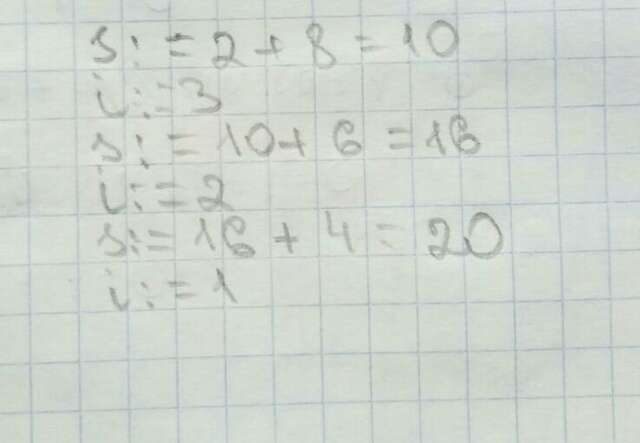 s: = 2 + 8 = 10
i: = 3
s: = 10 + 6 = 16
i: = 2
s: = 16 + 4 = 20
i: = 1